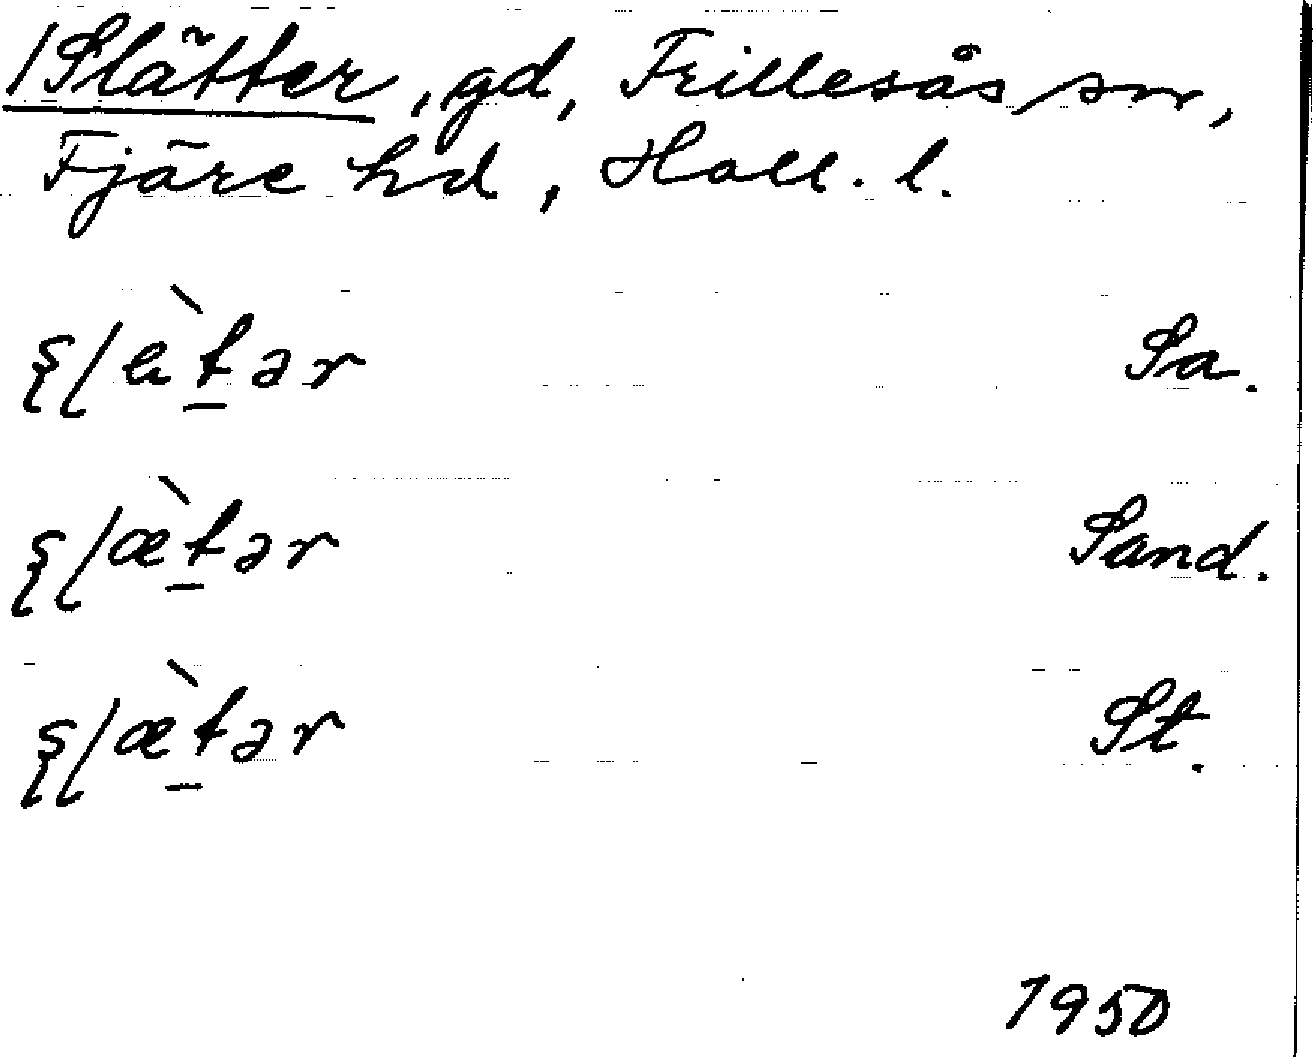 /Slätter, gd, Frillesås sn,
Fjäre hd, Hall. l.
ʂɭὲt̲ər Sa.
ʂɭæ̀t̲ər Sand.
ʂɭæ̀t̲ər St.
1950